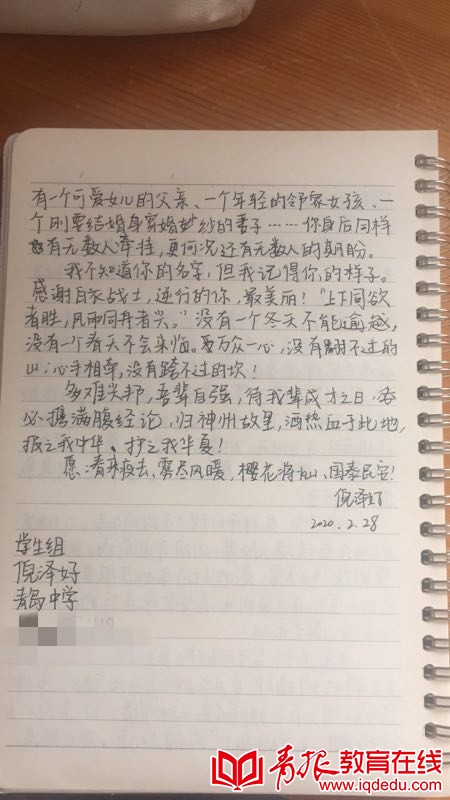 有一个可爱女儿的父亲、一个年轻的邻家女孩、一
个刚要结婚身穿婚纱的妻子……你身后同样
有无数人牵挂，更何况还有无数人的期盼。
我不知道你的名字，但我记得你的样子。
感谢白衣战士，逆行的你，最美丽！“上下同欲
者胜，风雨同舟者兴。”没有一个冬天不能逾越，
没有一个春天不会来临。要万众一心，没有翻不过的
山；心手相牵，没有跨不过的坎！
多难兴邦，吾辈自强，待我辈成才之日，吾
必携满腹经论，归神州故里，洒热血于此地，
报之我中华、护之我华夏！
愿：春来疫去、雾尽风暖，樱花将灿、国泰民安！
倪泽好
2020.2.28
学生组
倪泽好
青岛中学
青报教育在线
www.iqdedu.com